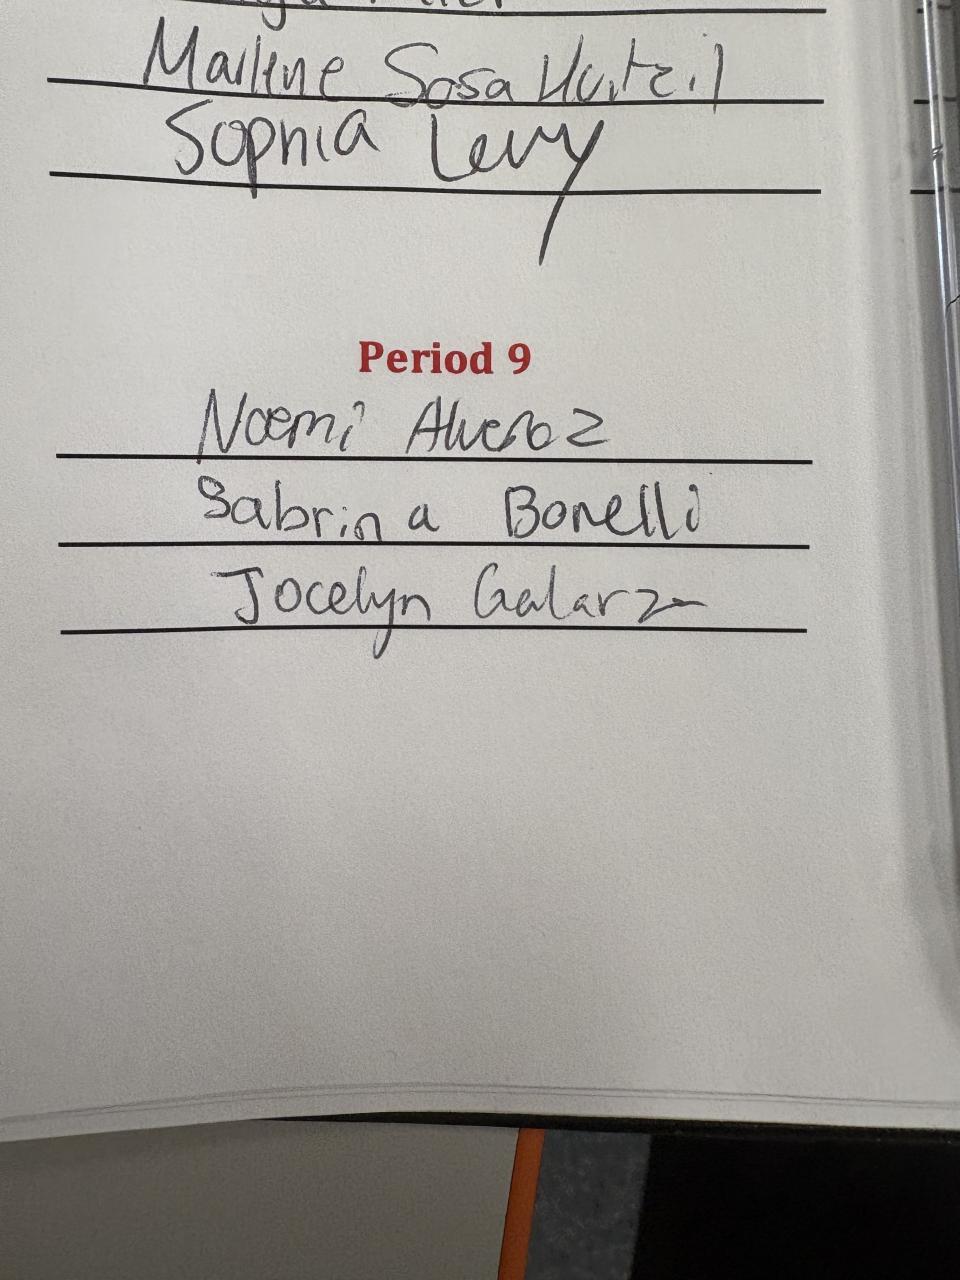 Marlene Sosa
Sophia Levy
Period 9
Noemi Alveroz
Sabrina Bonelli
Jocelyn Galarza